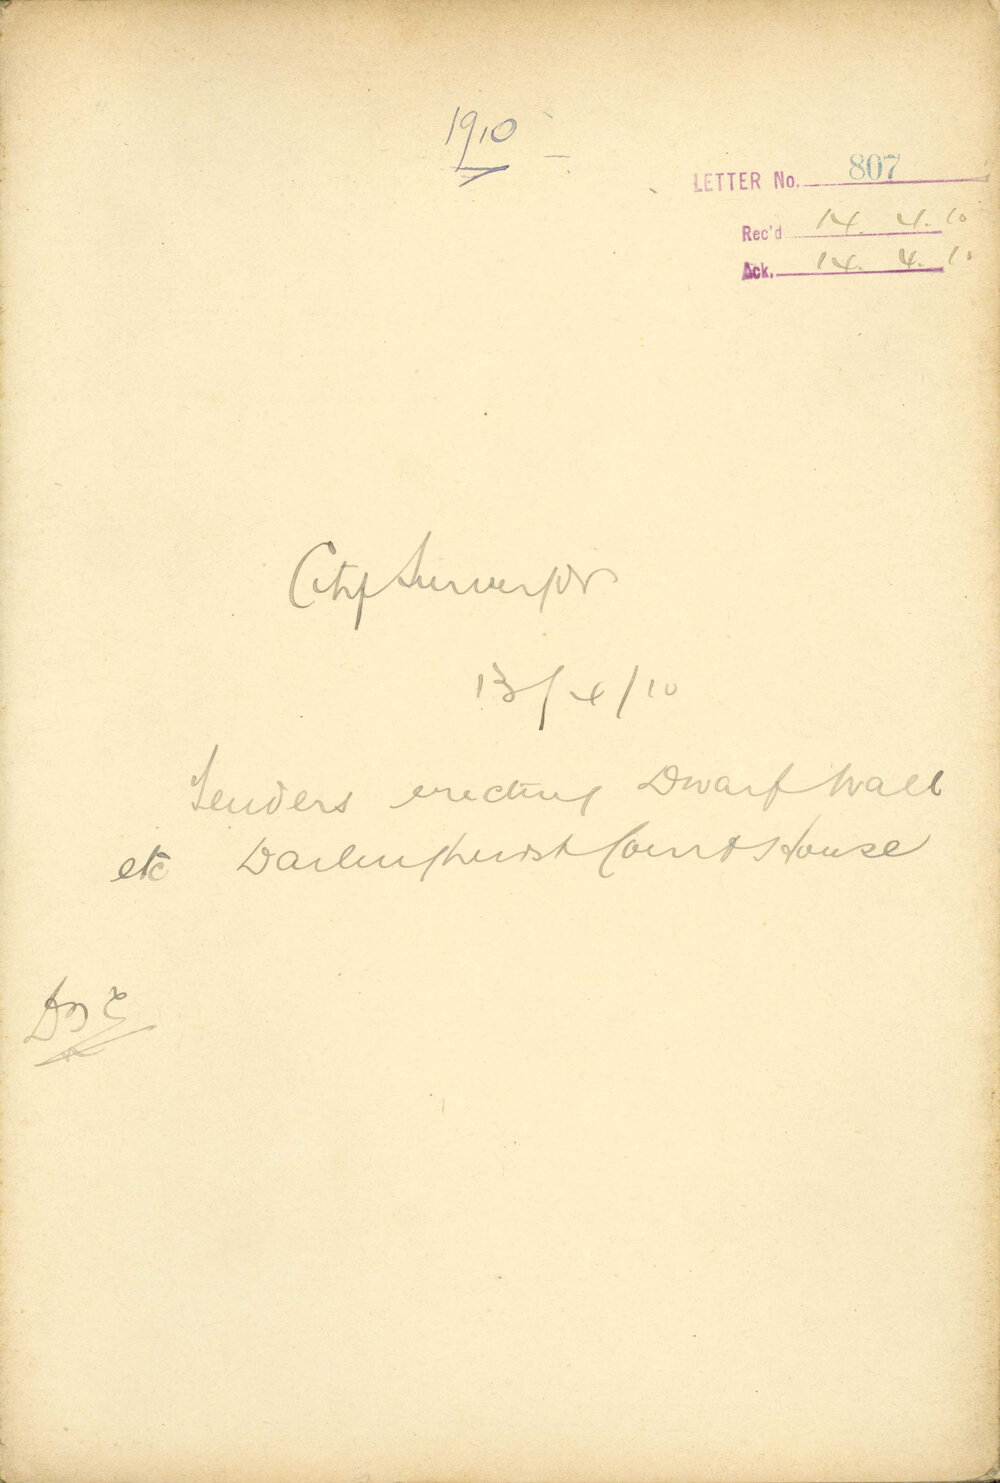 1910
LETTER No. 807
Rec'd 14. 4. 10
Ack. 14. 4. 10
City Surveyor
13/4/10
Tenders erecting Dwarf Wall
etc Darlinghurst Court House